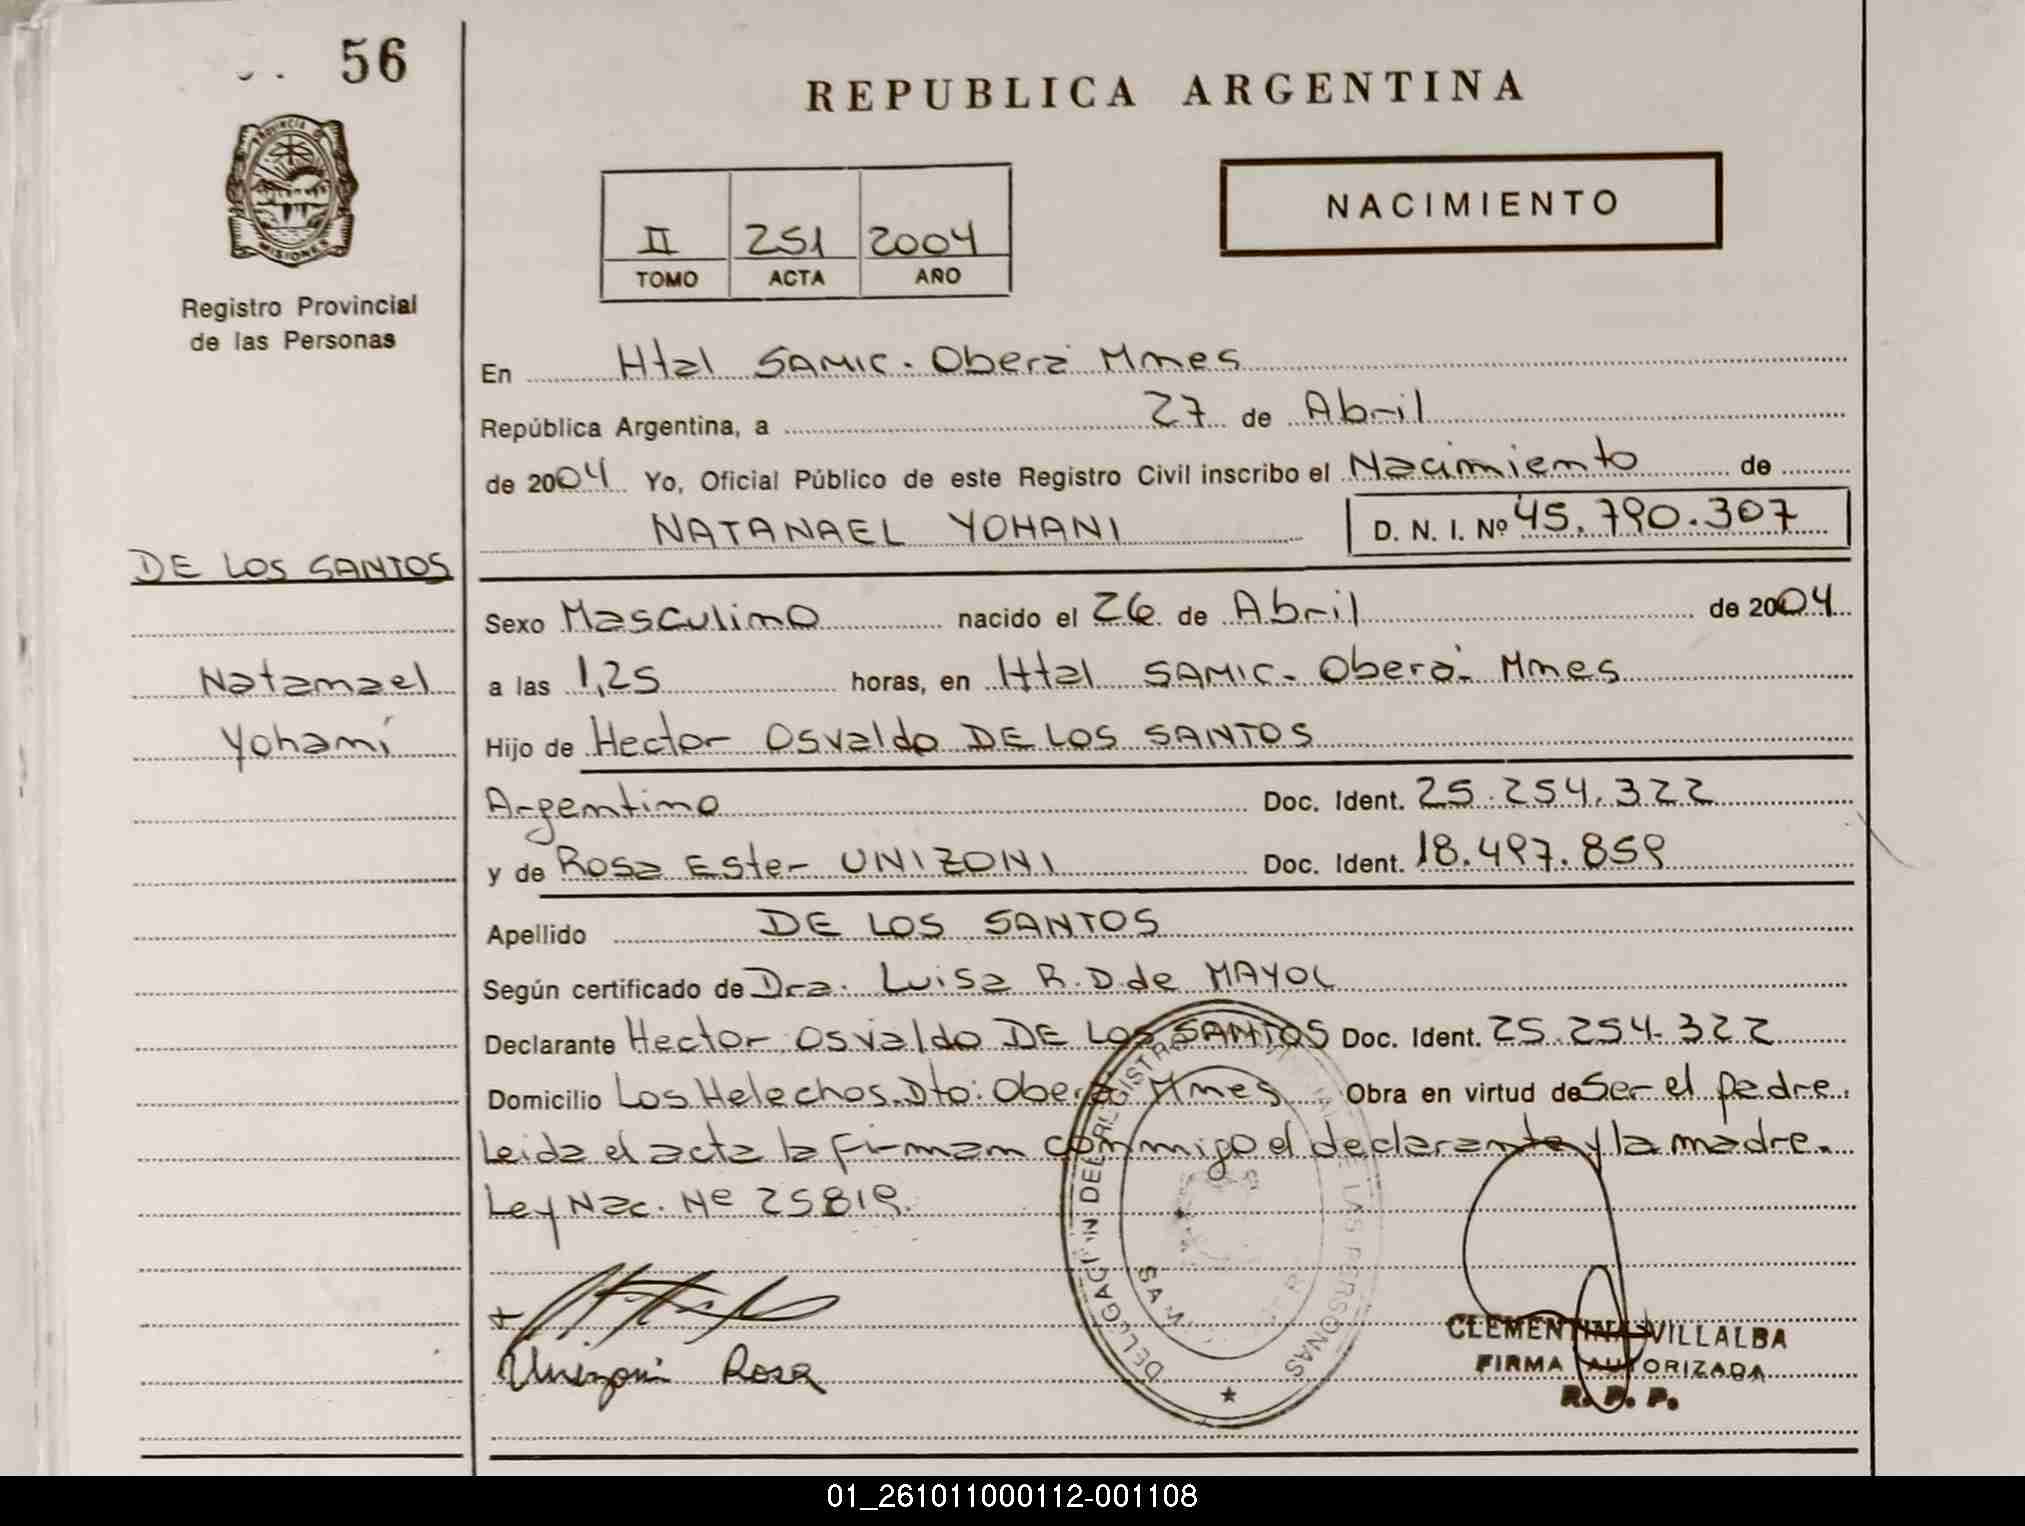 56
REPUBLICA ARGENTINA
PROVINCIA DE
MISIONES
Registro Provincial
de las Personas
II 251 2004
TOMO ACTA AÑO
NACIMIENTO
En Htal SAMIC. Oberá Mnes
República Argentina, a 27 de Abril
de 2004 Yo, Oficial Público de este Registro Civil inscribo el Nacimiento de
NATANAEL YOHANI D. N. I. Nº 45.790.307
DE LOS SANTOS
Natanael
Yohaní
Sexo Masculino nacido el 26 de Abril de 2004
a las 1,25 horas, en Htal SAMIC. Oberá. Mnes
Hijo de Hector Osvaldo DE LOS SANTOS
Argentino Doc. Ident. 25.254.322
y de Rosa Ester UNIZONI Doc. Ident. 18.497.859
Apellido DE LOS SANTOS
Según certificado de Dra. Luisa R.D. de MAYOL
Declarante Hector Osvaldo DE LOS SANTOS Doc. Ident. 25.254.322
Domicilio Los Helechos. Dto: Oberá Mnes Obra en virtud de Ser el padre.
Leida el acta la firman conmigo el declarante y la madre.
Ley Nac. Nº 25819.
Unizoni Rosa
CLEMENTINA VILLALBA
FIRMA AUTORIZADA
R. P. P.
01_261011000112-001108